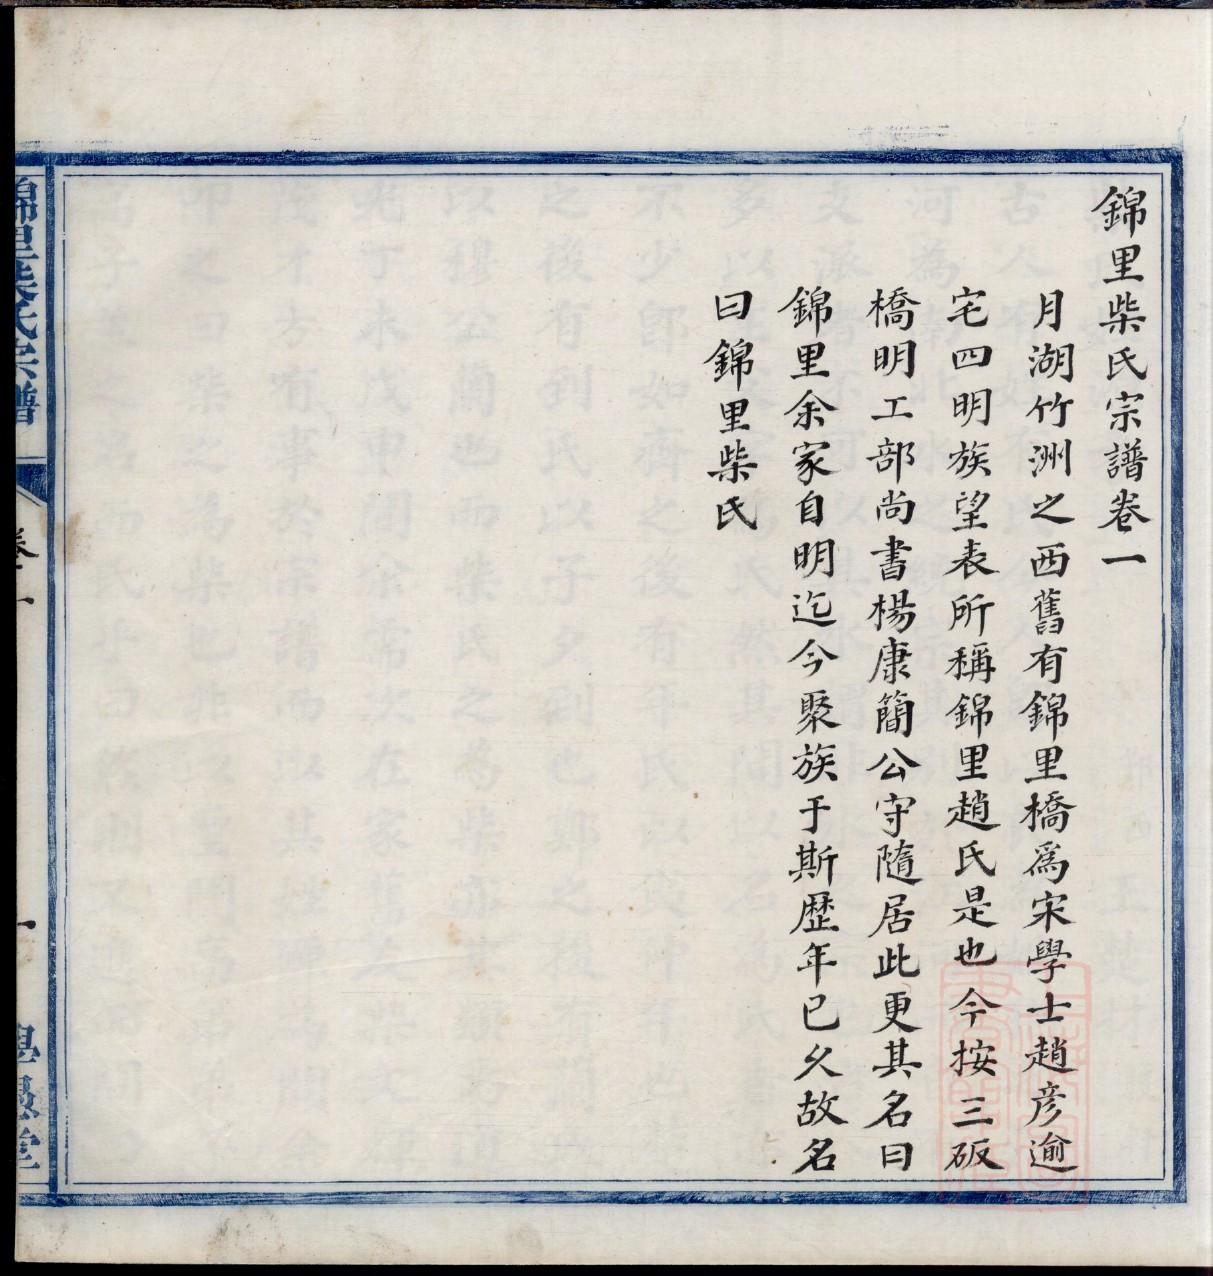 錦里柴氏宗譜卷一
月湖竹洲之西舊有錦里橋爲宋學士趙彦逾
宅四明族望表所稱錦里趙氏是也今按三𥐻
橋明工部尚書楊康簡公守隨居此更其名曰
錦里余家自明迄今聚族于斯歷年已久故名
曰錦里柴氏
錦里柴氏宗譜
卷一
一